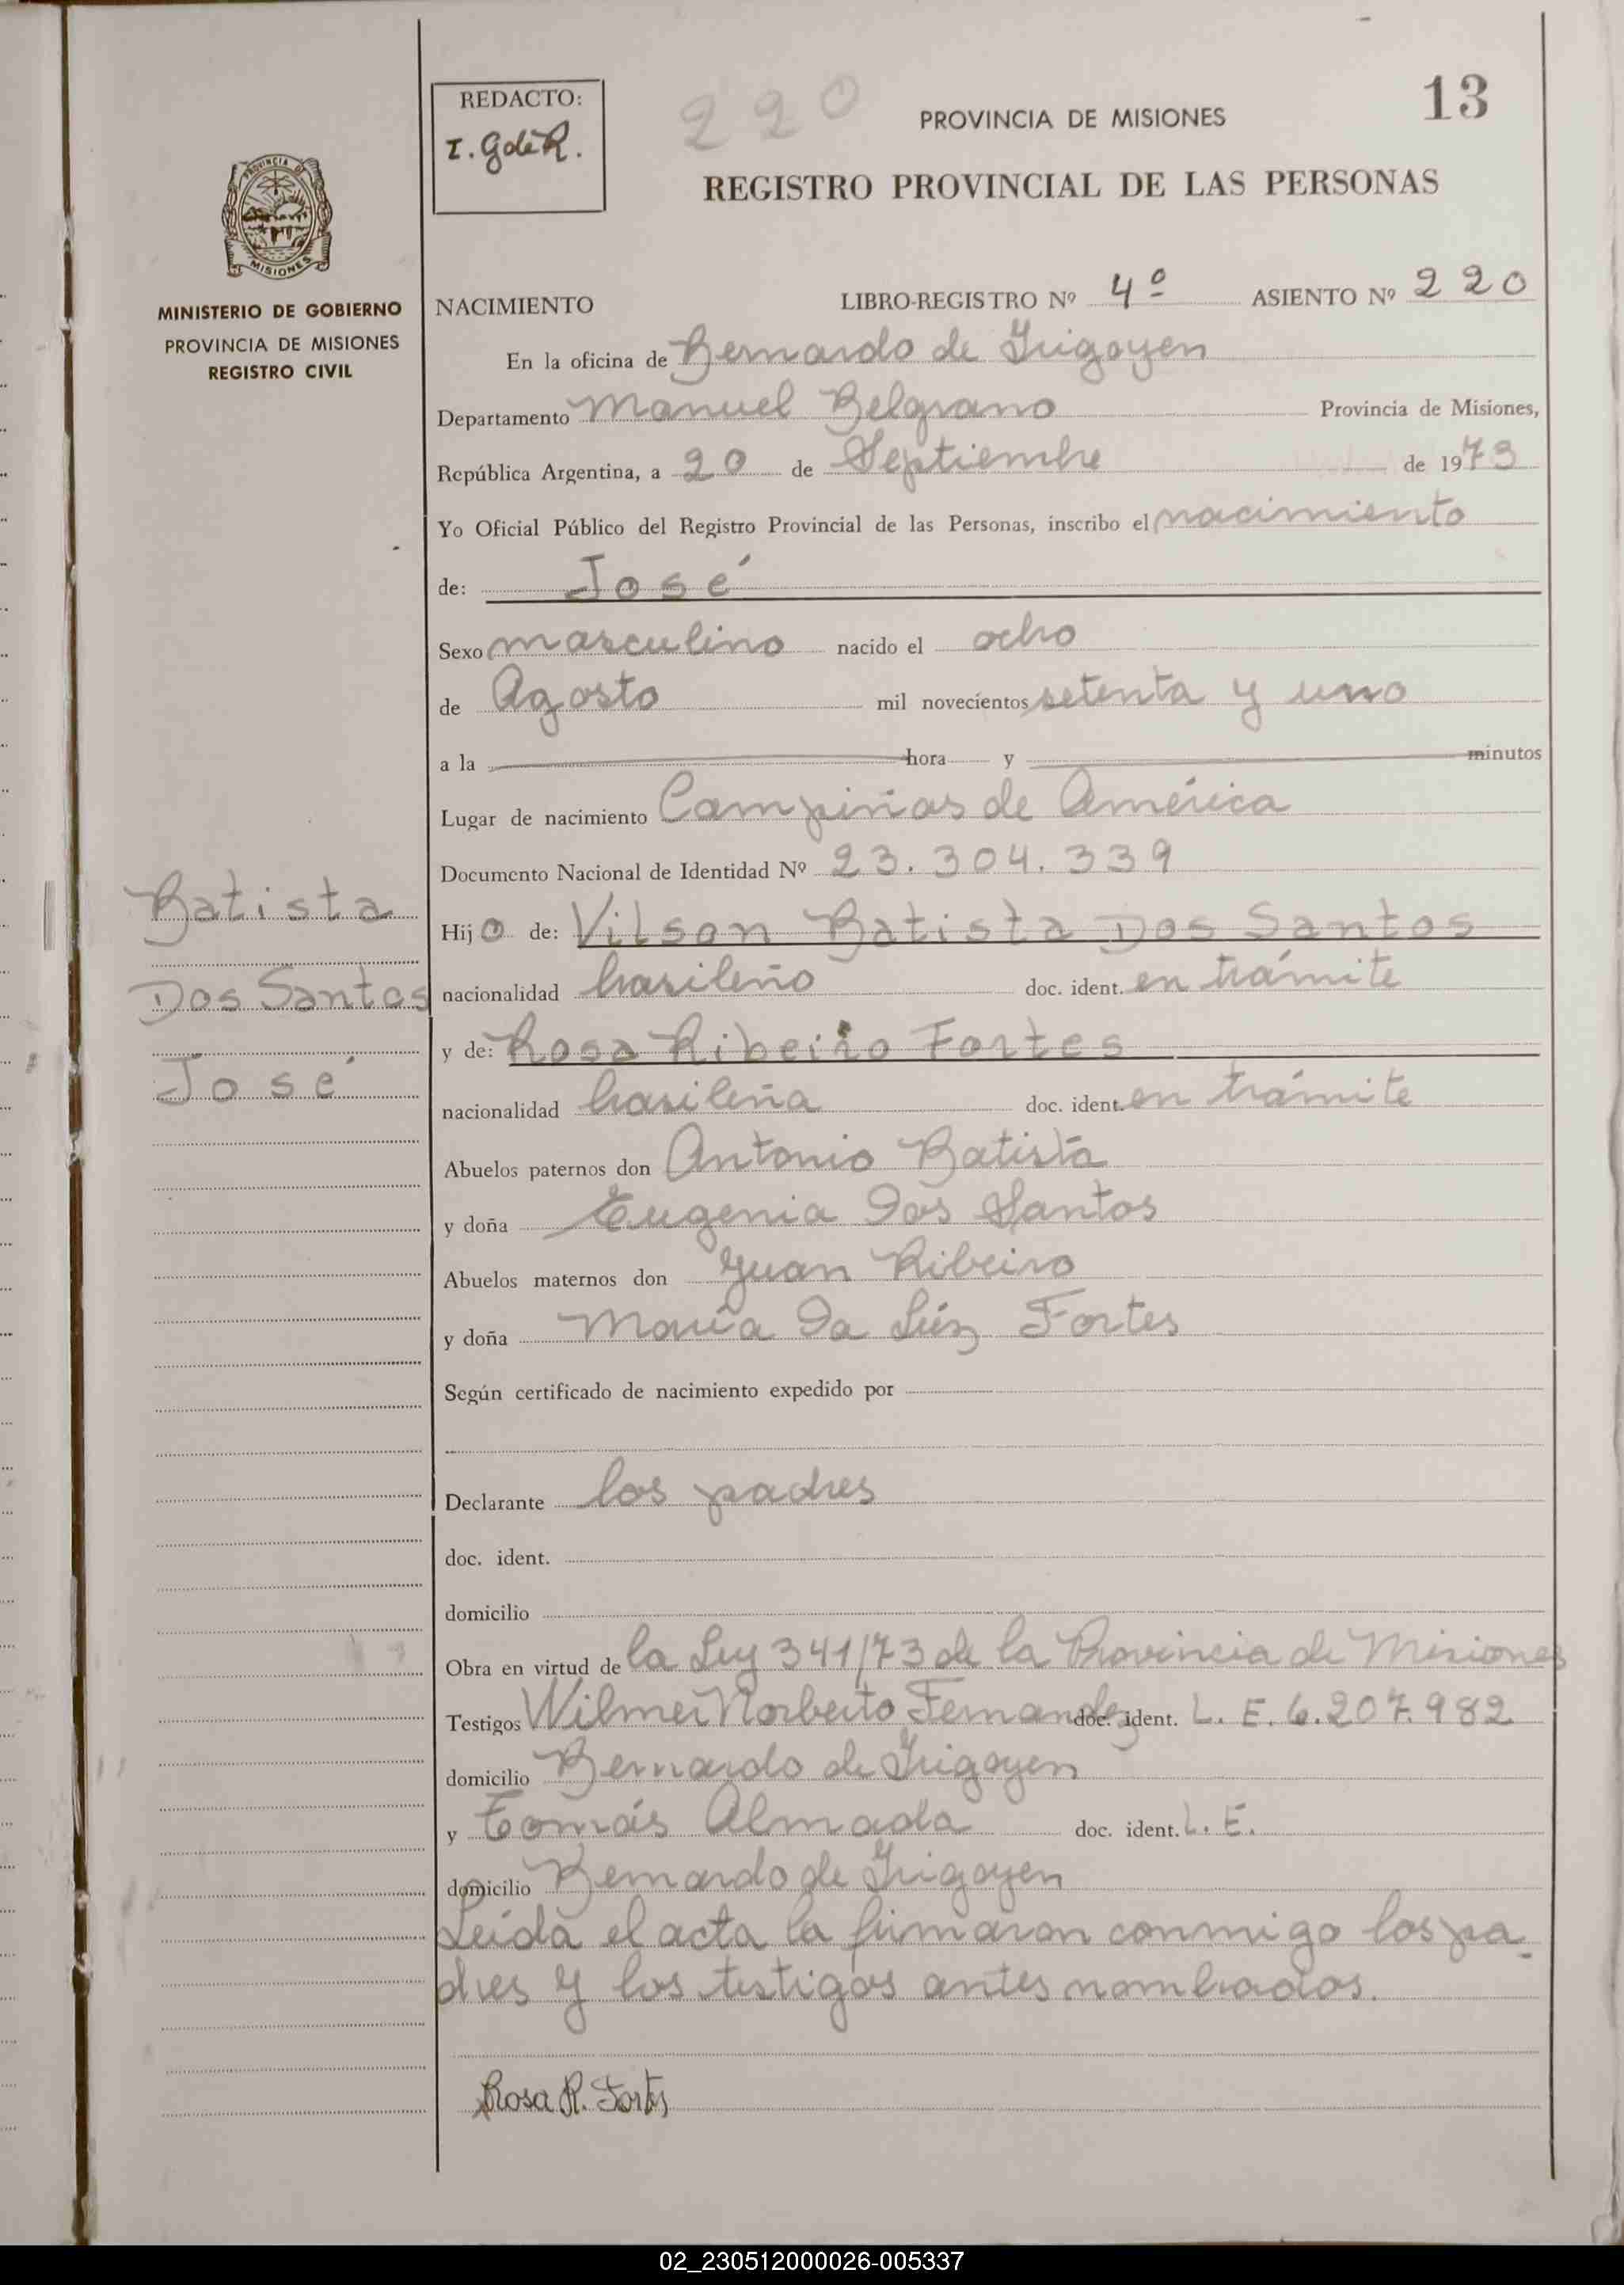 REDACTO:
I. G de R.
220
PROVINCIA DE MISIONES
13
REGISTRO PROVINCIAL DE LAS PERSONAS
PROVINCIA DE
MISIONES
MINISTERIO DE GOBIERNO
PROVINCIA DE MISIONES
REGISTRO CIVIL
NACIMIENTO LIBRO-REGISTRO Nº 4º ASIENTO Nº 220
En la oficina de Bernardo de Irigoyen
Departamento Manuel Belgrano Provincia de Misiones,
República Argentina, a 20 de Septiembre de 1973
Yo Oficial Público del Registro Provincial de las Personas, inscribo el nacimiento
de: José
Sexo masculino nacido el ocho
de Agosto mil novecientos setenta y uno
a la hora y minutos
Lugar de nacimiento Campiñas de América
Documento Nacional de Identidad Nº 23.304.339
Batista
Dos Santos
José
Hijo de: Vilson Batista Dos Santos
nacionalidad brasileño doc. ident. en trámite
y de: Rosa Ribeiro Fortes
nacionalidad brasileña doc. ident. en trámite
Abuelos paternos don Antonio Batista
y doña Eugenia Dos Santos
Abuelos maternos don Juan Ribeiro
y doña María Da Lúz Fortes
Según certificado de nacimiento expedido por
Declarante los padres
doc. ident.
domicilio
Obra en virtud de la Ley 341/73 de la Provincia de Misiones
Testigos Wilmer Norberto Fernandez doc. ident. L. E. 6.207.982
domicilio Bernardo de Irigoyen
y Tomás Almada doc. ident. L. E.
domicilio Bernardo de Irigoyen
Leída el acta la firmaron conmigo los pa-
dres y los testigos antes nombrados.
Rosa R. Fortes
02_230512000026-005337